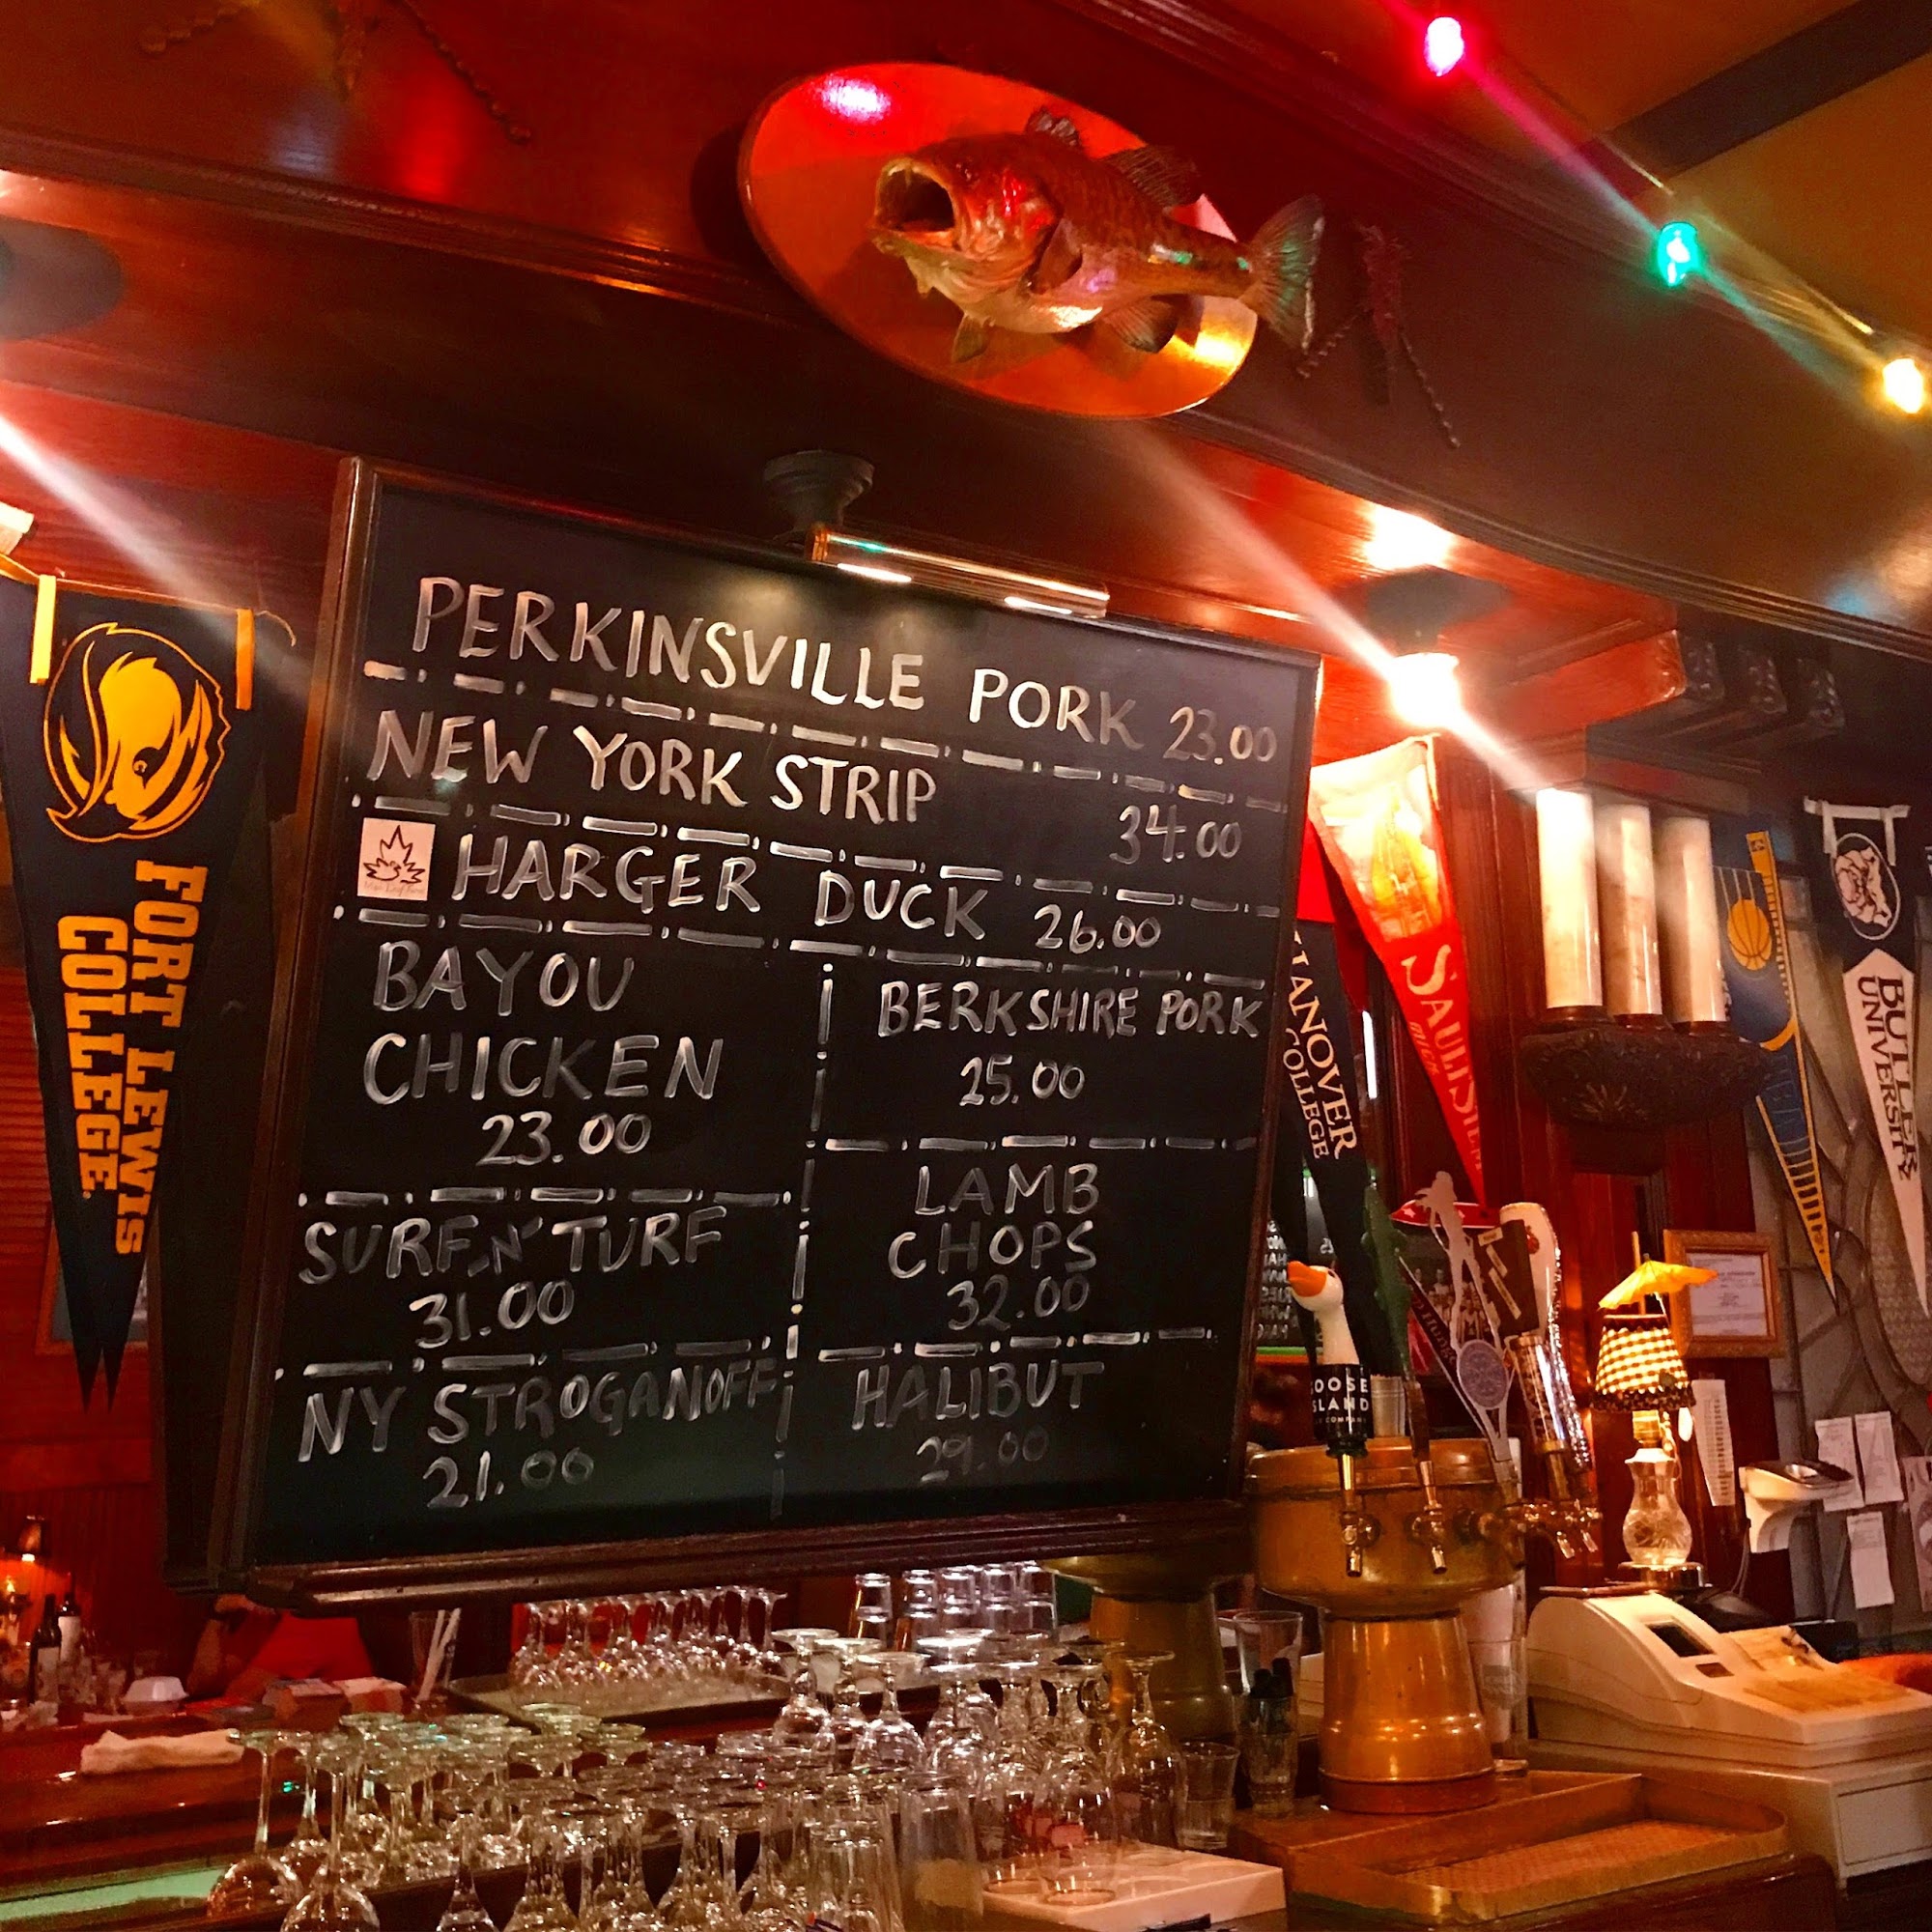 PERKINSVILLE PORK 23.00
NEW YORK STRIP 34.00
HARGER DUCK 26.00
BAYOU
CHICKEN
23.00
BERKSHIRE PORK
25.00
SURF N' TURF
31.00
LAMB
CHOPS
32.00
NY STROGANOFF
21.00
HALIBUT
29.00
FORT LEWIS
COLLEGE
HANOVER
COLLEGE
BUTLER
UNIVERSITY
GOOSE
ISLAND